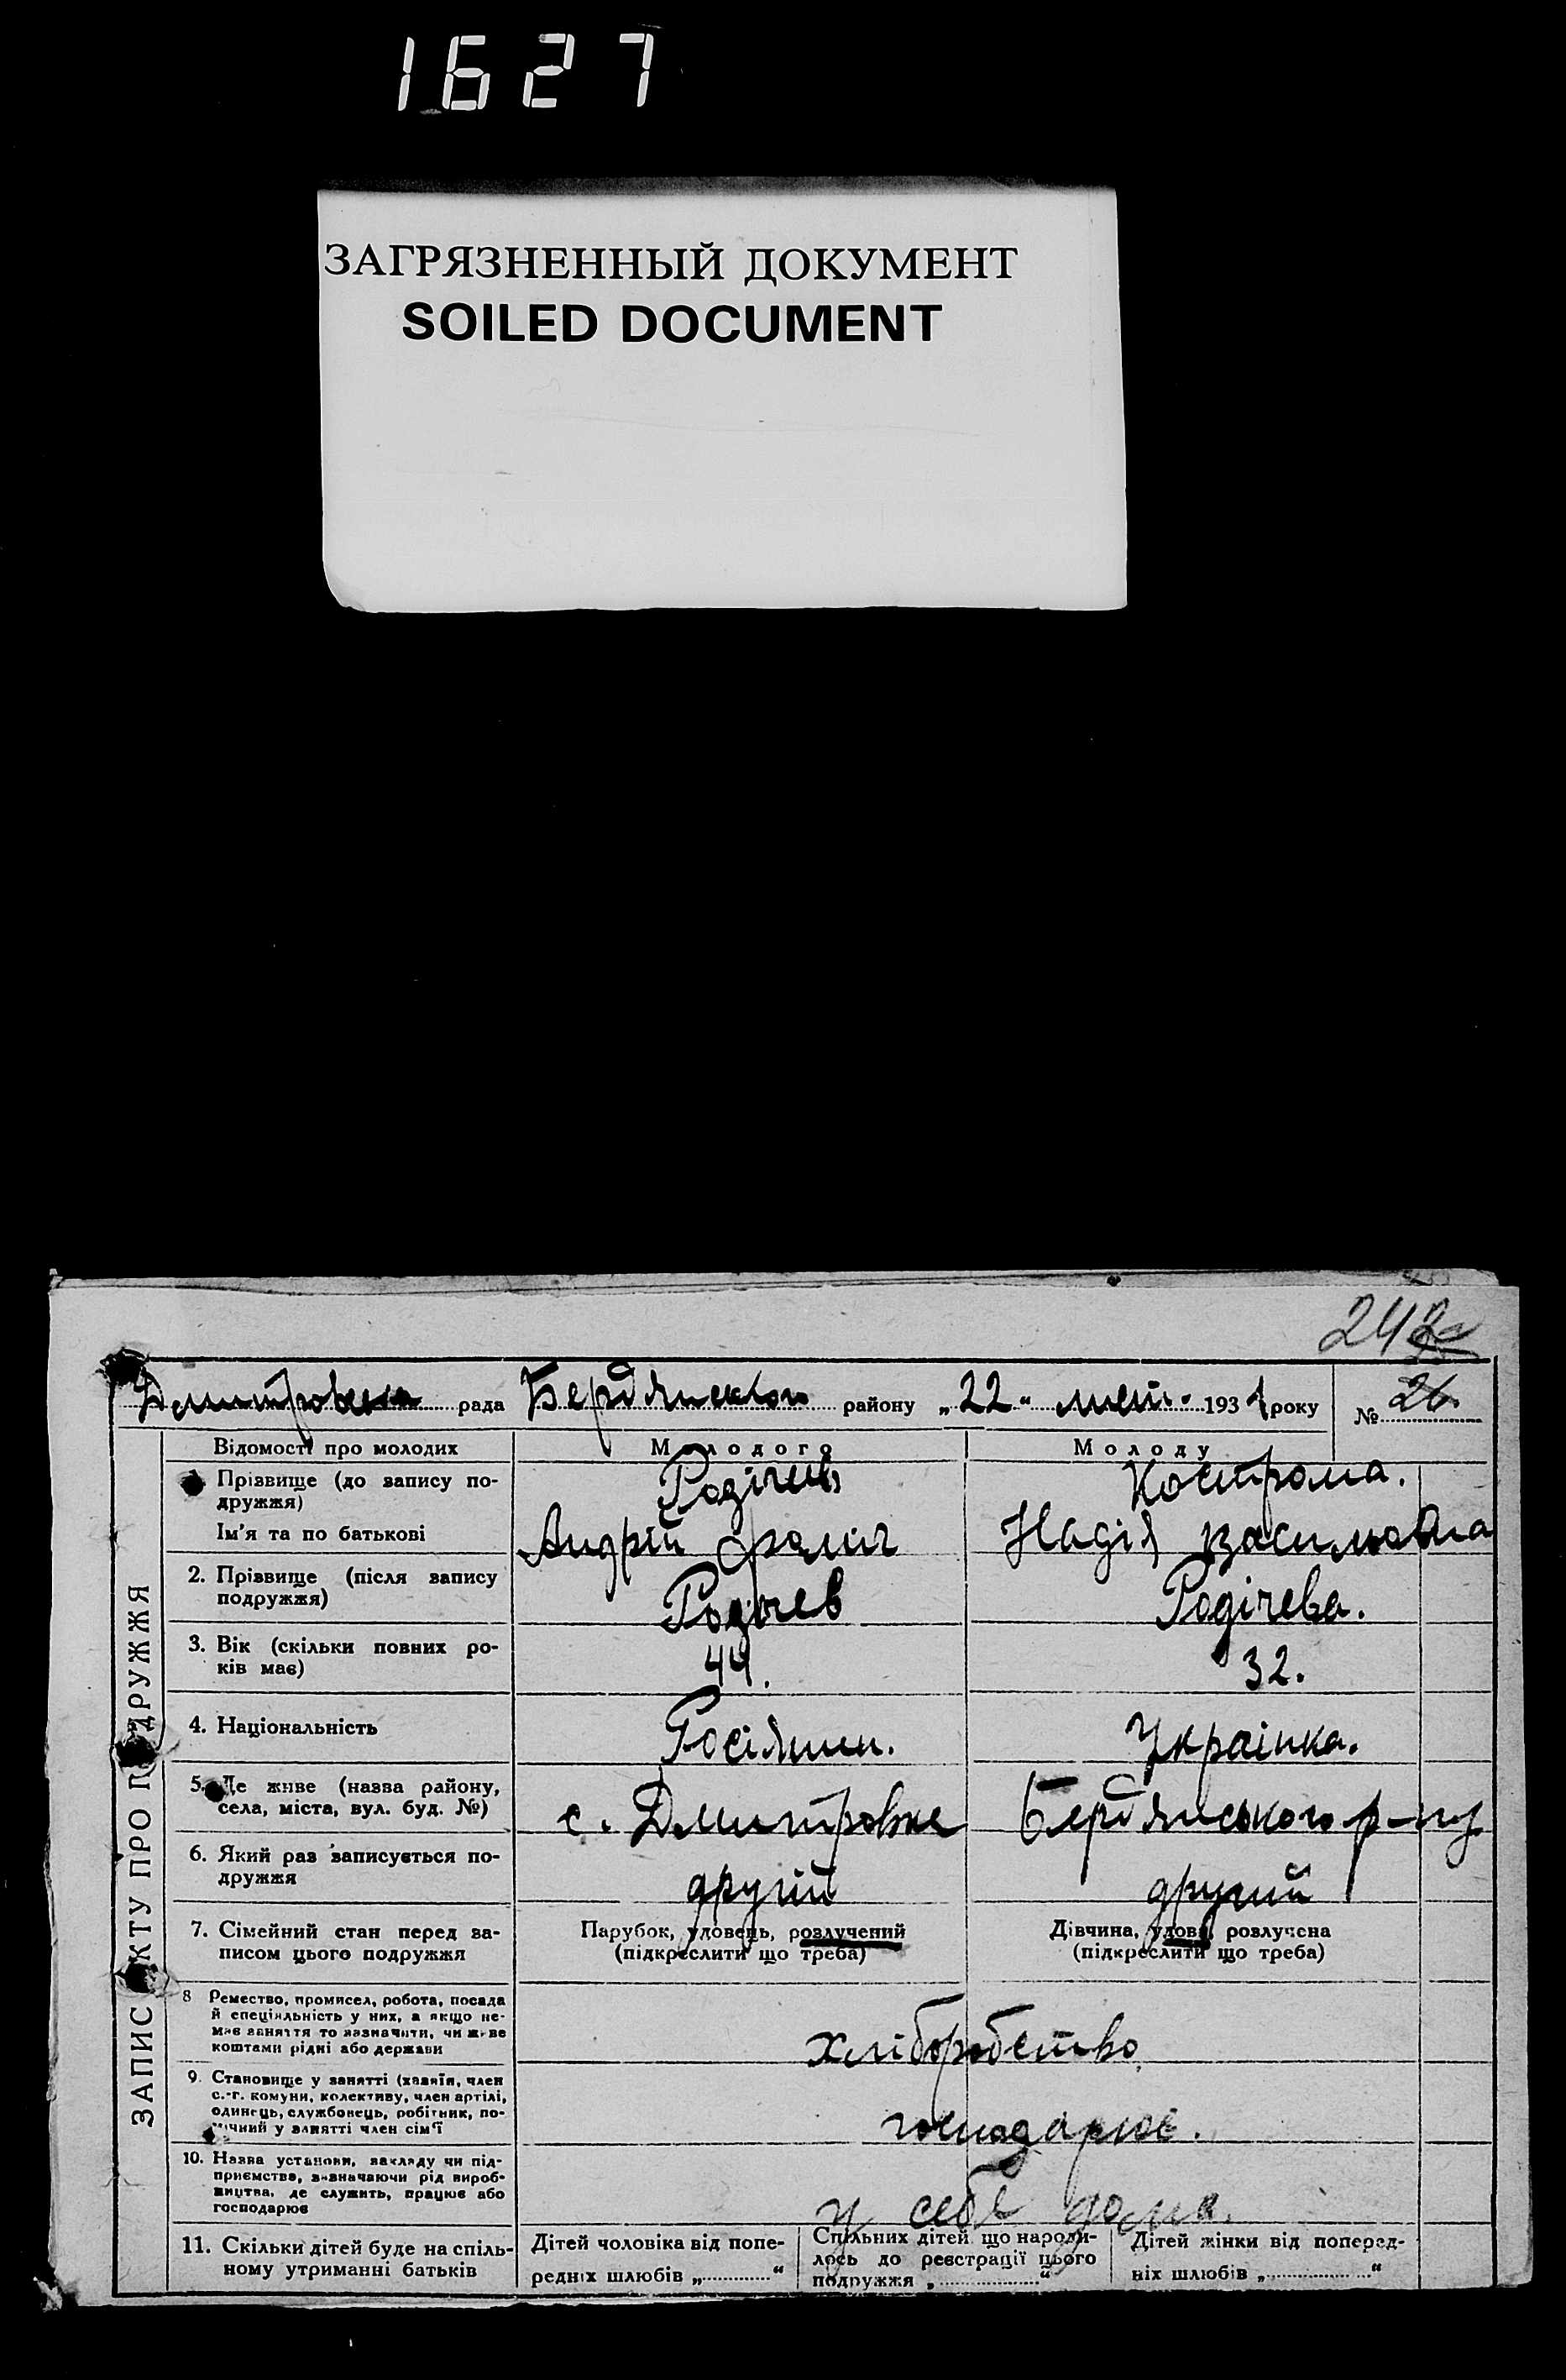 1627
ЗАГРЯЗНЕННЫЙ ДОКУМЕНТ
SOILED DOCUMENT
242
Дмитровска рада Бердянсково району „22“ лист. 1931 року № 26.
Відомості про молодих
Молодого
Молоду
1. Прізвище (до запису по-
дружжя)
Родічев
Кострома.
Ім'я та по батькові
Андрій
Надія
2. Прізвище (після запису
подружжя)
Родічев
Родічева.
3. Вік (скільки повних ро-
ків має)
44.
32.
4. Національність
Росіянин.
Українка.
5. Де живе (назва району,
села, міста, вул. буд. №)
с. Дмитровке Бердянського р-ну
6. Який раз записується по-
дружжя
другий
другий
7. Сімейний стан перед за-
писом цього подружжя
Парубок, удовець, розлучений
(підкреслити що треба)
Дівчина, удова, розлучена
(підкреслити що треба)
8 Ремество, промисел, робота, посада
й спеціяльність у них, а якщо не-
має заняття то зазначити, чи живе
коштами рідні або держави
хліборобство
9. Становище у занятті (хазяїн, член
с.-г. комуни, колективу, член артілі,
одинець, службовець, робітник, по-
мічний у занятті член сім'ї
господарює.
10. Назва установи, закладу чи під-
приємства, зазначаючи рід вироб-
ництва, де служить, працює або
господарює
у себе дома.
11. Скільки дітей буде на спіль-
ному утриманні батьків
Дітей чоловіка від попе-
редніх шлюбів „ “
Спільних дітей що народи-
лось до реєстрації цього
подружжя „ “
Дітей жінки від поперед-
ніх шлюбів „ “
ЗАПИС АКТУ ПРО ПОДРУЖЖЯ